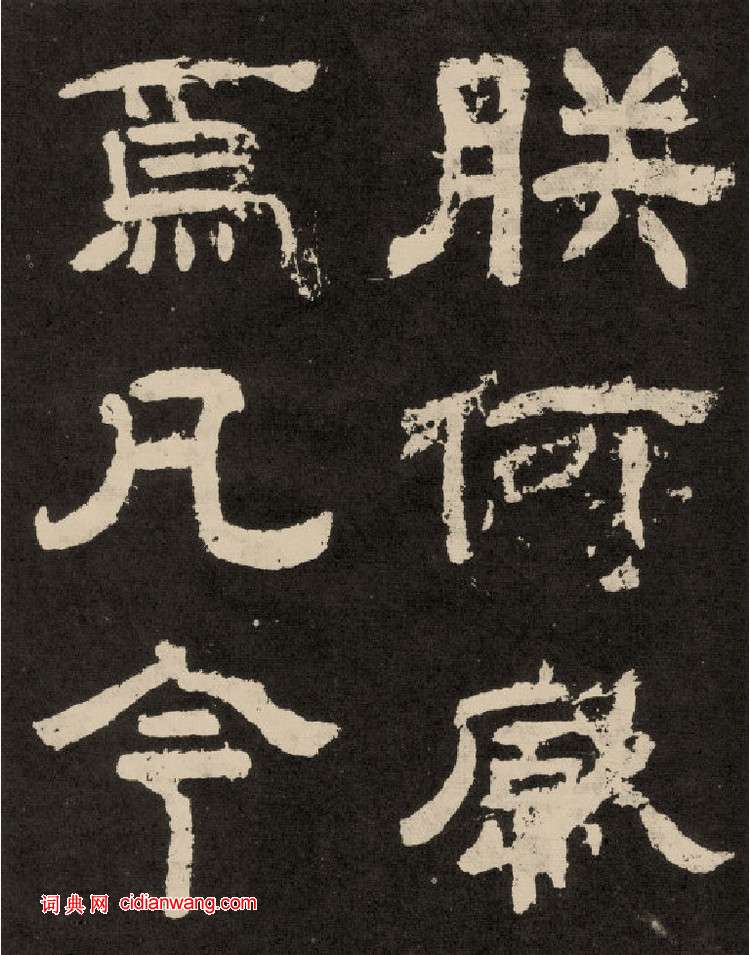 朕何
焉凡今
词典网 cidianwang.com